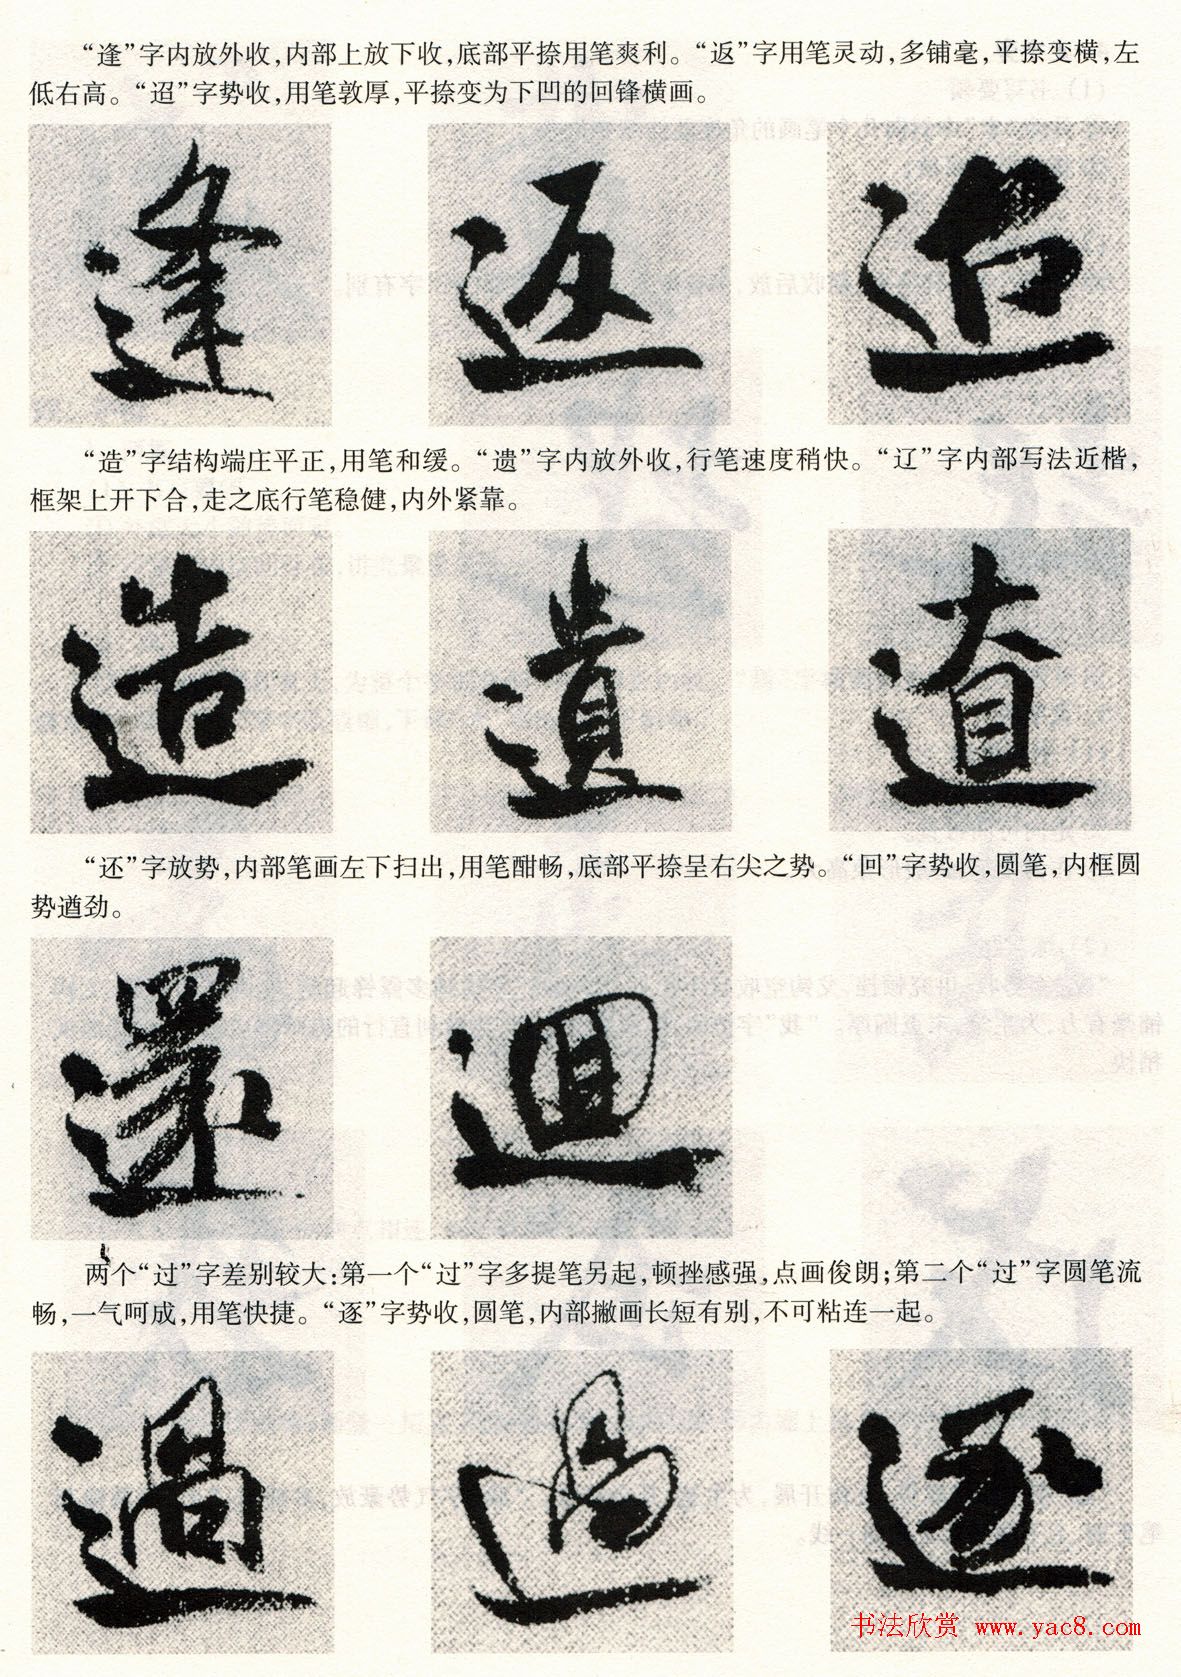 “逢”字内放外收，内部上放下收，底部平捺用笔爽利。“返”字用笔灵动，多铺毫，平捺变横，左
低右高。“迢”字势收，用笔敦厚，平捺变为下凹的回锋横画。
逢 返 迢
“造”字结构端庄平正，用笔和缓。“遗”字内放外收，行笔速度稍快。“辽”字内部写法近楷，
框架上开下合，走之底行笔稳健，内外紧靠。
造 遺
“还”字放势，内部笔画左下扫出，用笔酣畅，底部平捺呈右尖之势。“回”字势收，圆笔，内框圆
势遒劲。
還 迴
两个“过”字差别较大：第一个“过”字多提笔另起，顿挫感强，点画俊朗；第二个“过”字圆笔流
畅，一气呵成，用笔快捷。“逐”字势收，圆笔，内部撇画长短有别，不可粘连一起。
過 過 逐
书法欣赏 www.yac8.com